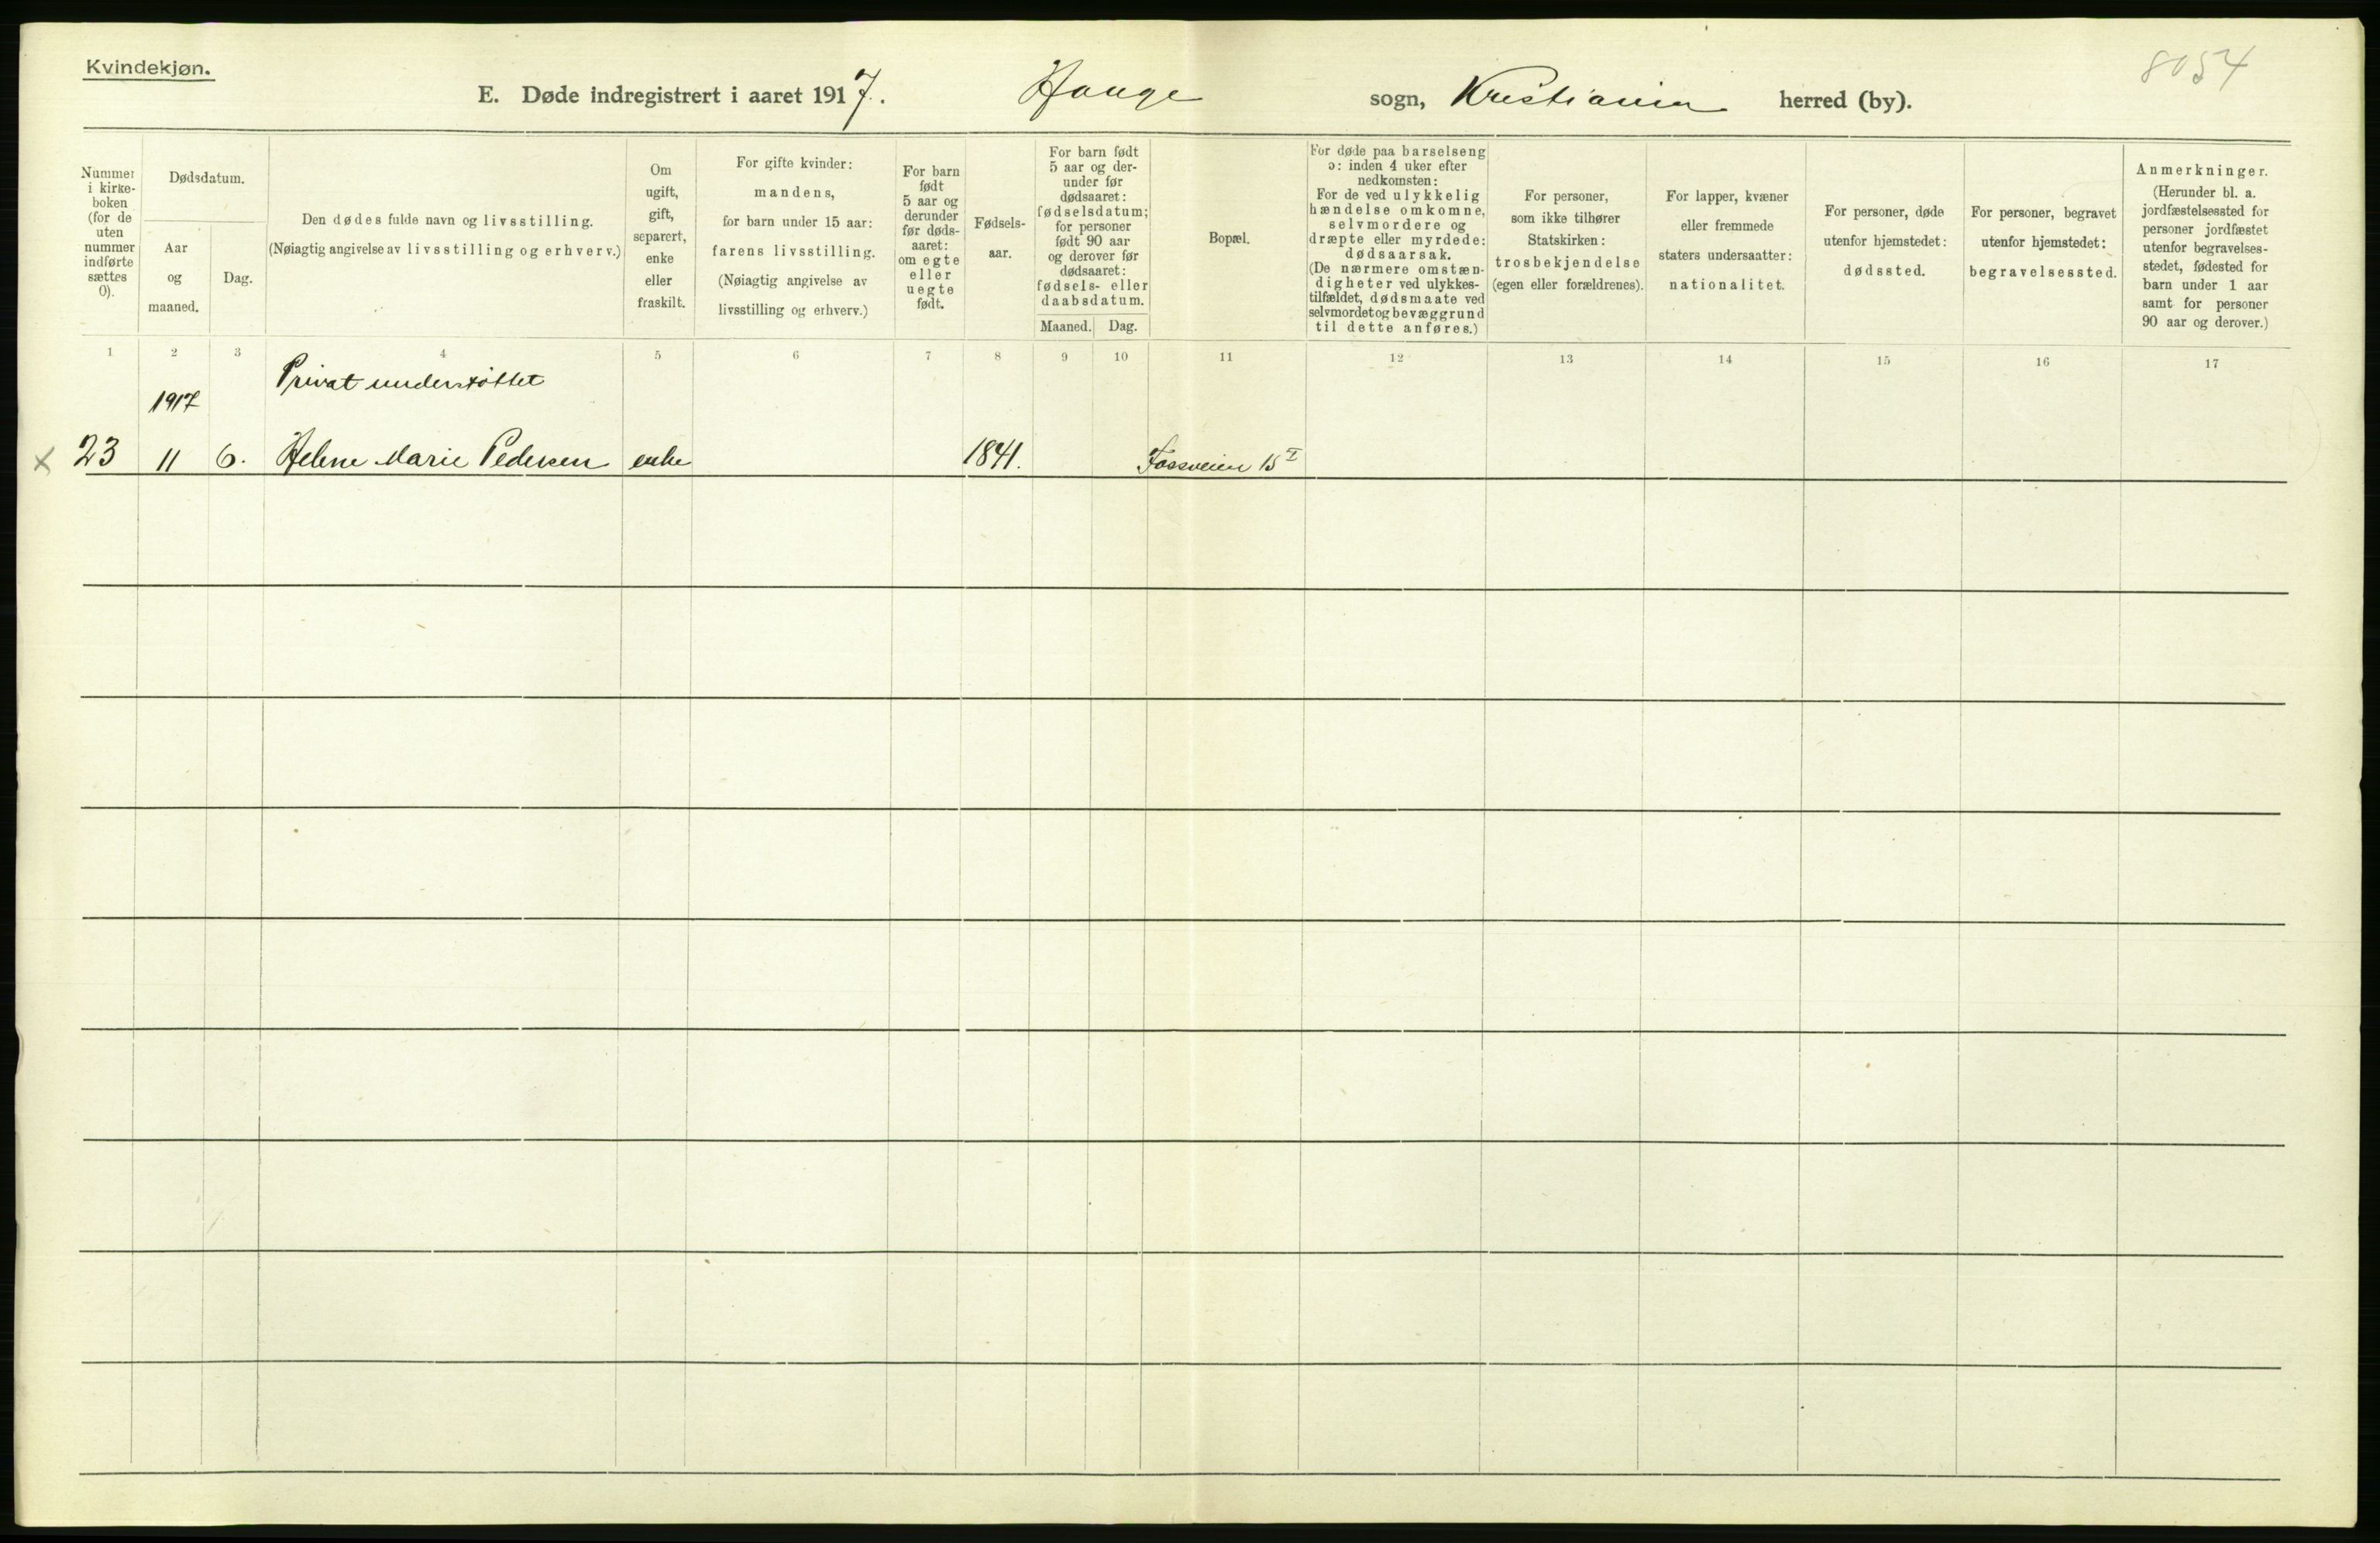 Kvindekjøn.
8054
E. Døde indregistrert i aaret 1917. Hauge sogn, Kristiania herred (by).
Nummer
i kirke-
boken
(for de
uten
nummer
indførte
sættes
0).
Dødsdatum.
Aar
og
maaned.
Dag.
Den dødes fulde navn og livsstilling.
(Nøiagtig angivelse av livsstilling og erhverv.)
Om
ugift,
gift,
separert,
enke
eller
fraskilt.
For gifte kvinder:
mandens,
for barn under 15 aar:
farens livsstilling.
(Nøiagtig angivelse av
livsstilling og erhverv.)
For barn
født
5 aar og
derunder
før døds-
aaret:
om egte
eller
uegte
født.
Fødsels-
aar.
For barn født
5 aar og der-
under før
dødsaaret:
fødselsdatum;
for personer
født 90 aar
og derover før
dødsaaret:
fødsels- eller
daabsdatum.
Maaned. Dag.
Bopæl.
For døde paa barselseng
ɔ: inden 4 uker efter
nedkomsten:
For de ved ulykkelig
hændelse omkomne,
selvmordere og
dræpte eller myrdede:
dødsaarsak.
(De nærmere omstæn-
digheter ved ulykkes-
tilfældet, dødsmaate ved
selvmordet og bevæggrund
til dette anføres.)
For personer,
som ikke tilhører
Statskirken:
trosbekjendelse
(egen eller forældrenes).
For lapper, kvæner
eller fremmede
staters undersaatter:
nationalitet.
For personer, døde
utenfor hjemstedet:
dødssted.
For personer, begravet
utenfor hjemstedet:
begravelsessted.
Anmerkninger.
(Herunder bl. a.
jordfæstelsessted for
personer jordfæstet
utenfor begravelses-
stedet, fødested for
barn under 1 aar
samt for personer
90 aar og derover.)
1 2 3 4 5 6 7 8 9 10 11 12 13 14 15 16 17
Privat understøttet
1917
x 23 11 6. Helene Marie Pedersen enke 1841. Fossveien 15 I